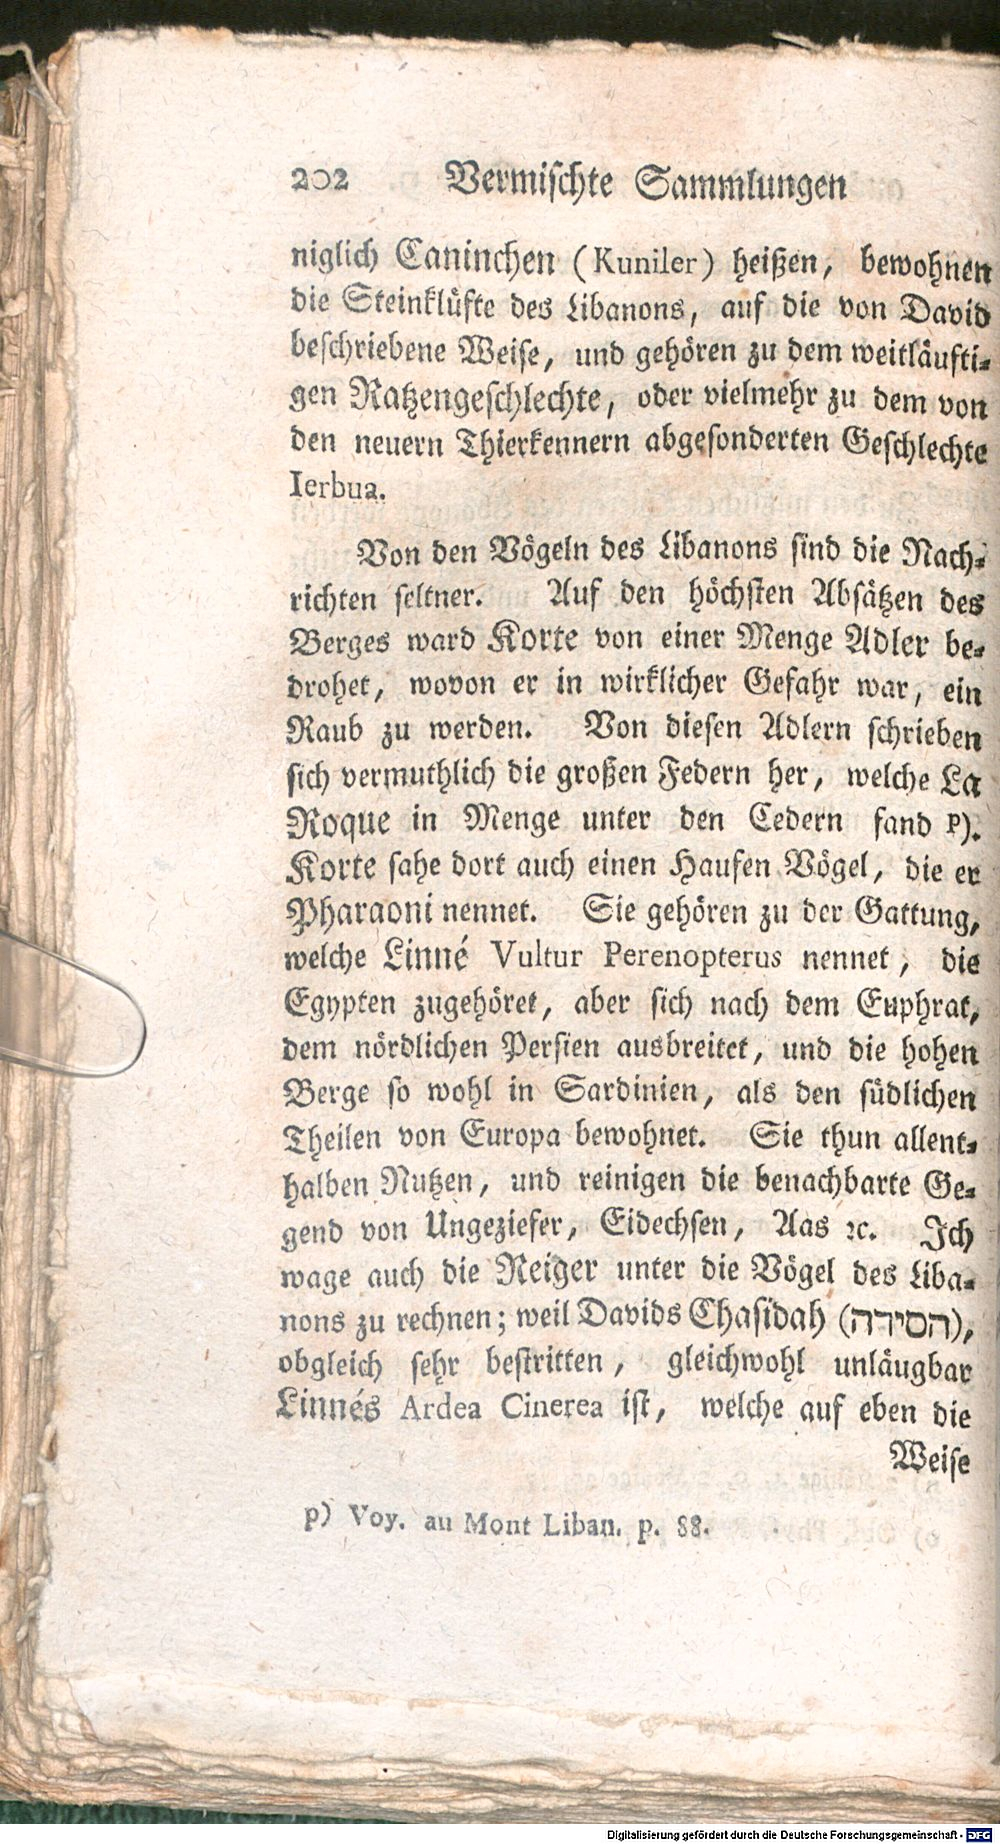 202 Vermischte Sammlungen
niglich Caninchen (Kuniler) heißen, bewohnen
die Steinklüfte des Libanons, auf die von David
beschriebene Weise, und gehören zu dem weitläufti-
gen Ratzengeschlechte, oder vielmehr zu dem von
den neuern Thierkennern abgesonderten Geschlechte
Ierbua.
Von den Vögeln des Libanons sind die Nach-
richten seltner. Auf den höchsten Absätzen des
Berges ward Korte von einer Menge Adler be-
drohet, wovon er in wirklicher Gefahr war, ein
Raub zu werden. Von diesen Adlern schrieben
sich vermuthlich die großen Federn her, welche La
Roque in Menge unter den Cedern fand p).
Korte sahe dort auch einen Haufen Vögel, die er
Pharaoni nennet. Sie gehören zu der Gattung,
welche Linné Vultur Perenopterus nennet, die
Egypten zugehöret, aber sich nach dem Euphrat,
dem nördlichen Persien ausbreitet, und die hohen
Berge so wohl in Sardinien, als den südlichen
Theilen von Europa bewohnet. Sie thun allent-
halben Nutzen, und reinigen die benachbarte Ge-
gend von Ungeziefer, Eidechsen, Aas ꝛc. Ich
wage auch die Reiger unter die Vögel des Liba-
nons zu rechnen; weil Davids Chasidah (הסירה),
obgleich sehr bestritten, gleichwohl unläugbar
Linnés Ardea Cinerea ist, welche auf eben die
Weise
p) Voy. au Mont Liban. p. 88.
Digitalisierung gefördert durch die Deutsche Forschungsgemeinschaft - DFG